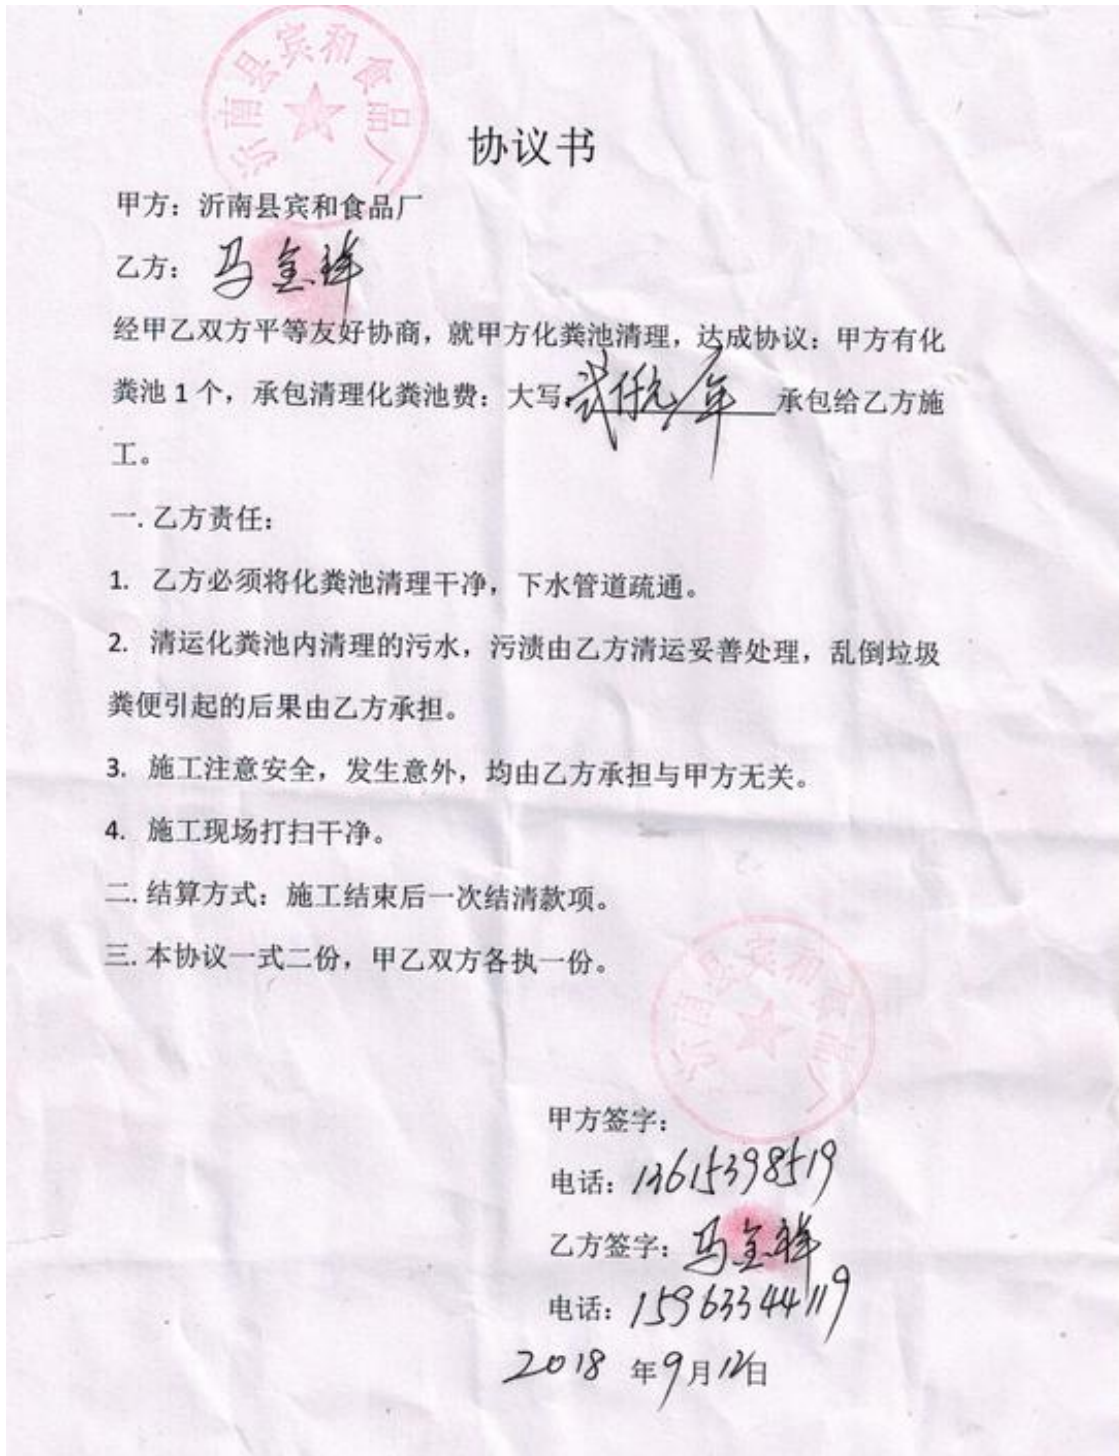 沂南县宾和食品厂
协议书
甲方：沂南县宾和食品厂
乙方：马金祥
经甲乙双方平等友好协商，就甲方化粪池清理，达成协议：甲方有化
粪池1个，承包清理化粪池费：大写：贰仟元/年 承包给乙方施
工。
一.乙方责任：
1. 乙方必须将化粪池清理干净，下水管道疏通。
2. 清运化粪池内清理的污水，污渍由乙方清运妥善处理，乱倒垃圾
粪便引起的后果由乙方承担。
3. 施工注意安全，发生意外，均由乙方承担与甲方无关。
4. 施工现场打扫干净。
二.结算方式：施工结束后一次结清款项。
三.本协议一式二份，甲乙双方各执一份。
沂南县宾和食品厂
甲方签字：
电话：13615398519
乙方签字：马金祥
电话：15963344119
2018 年9月12日